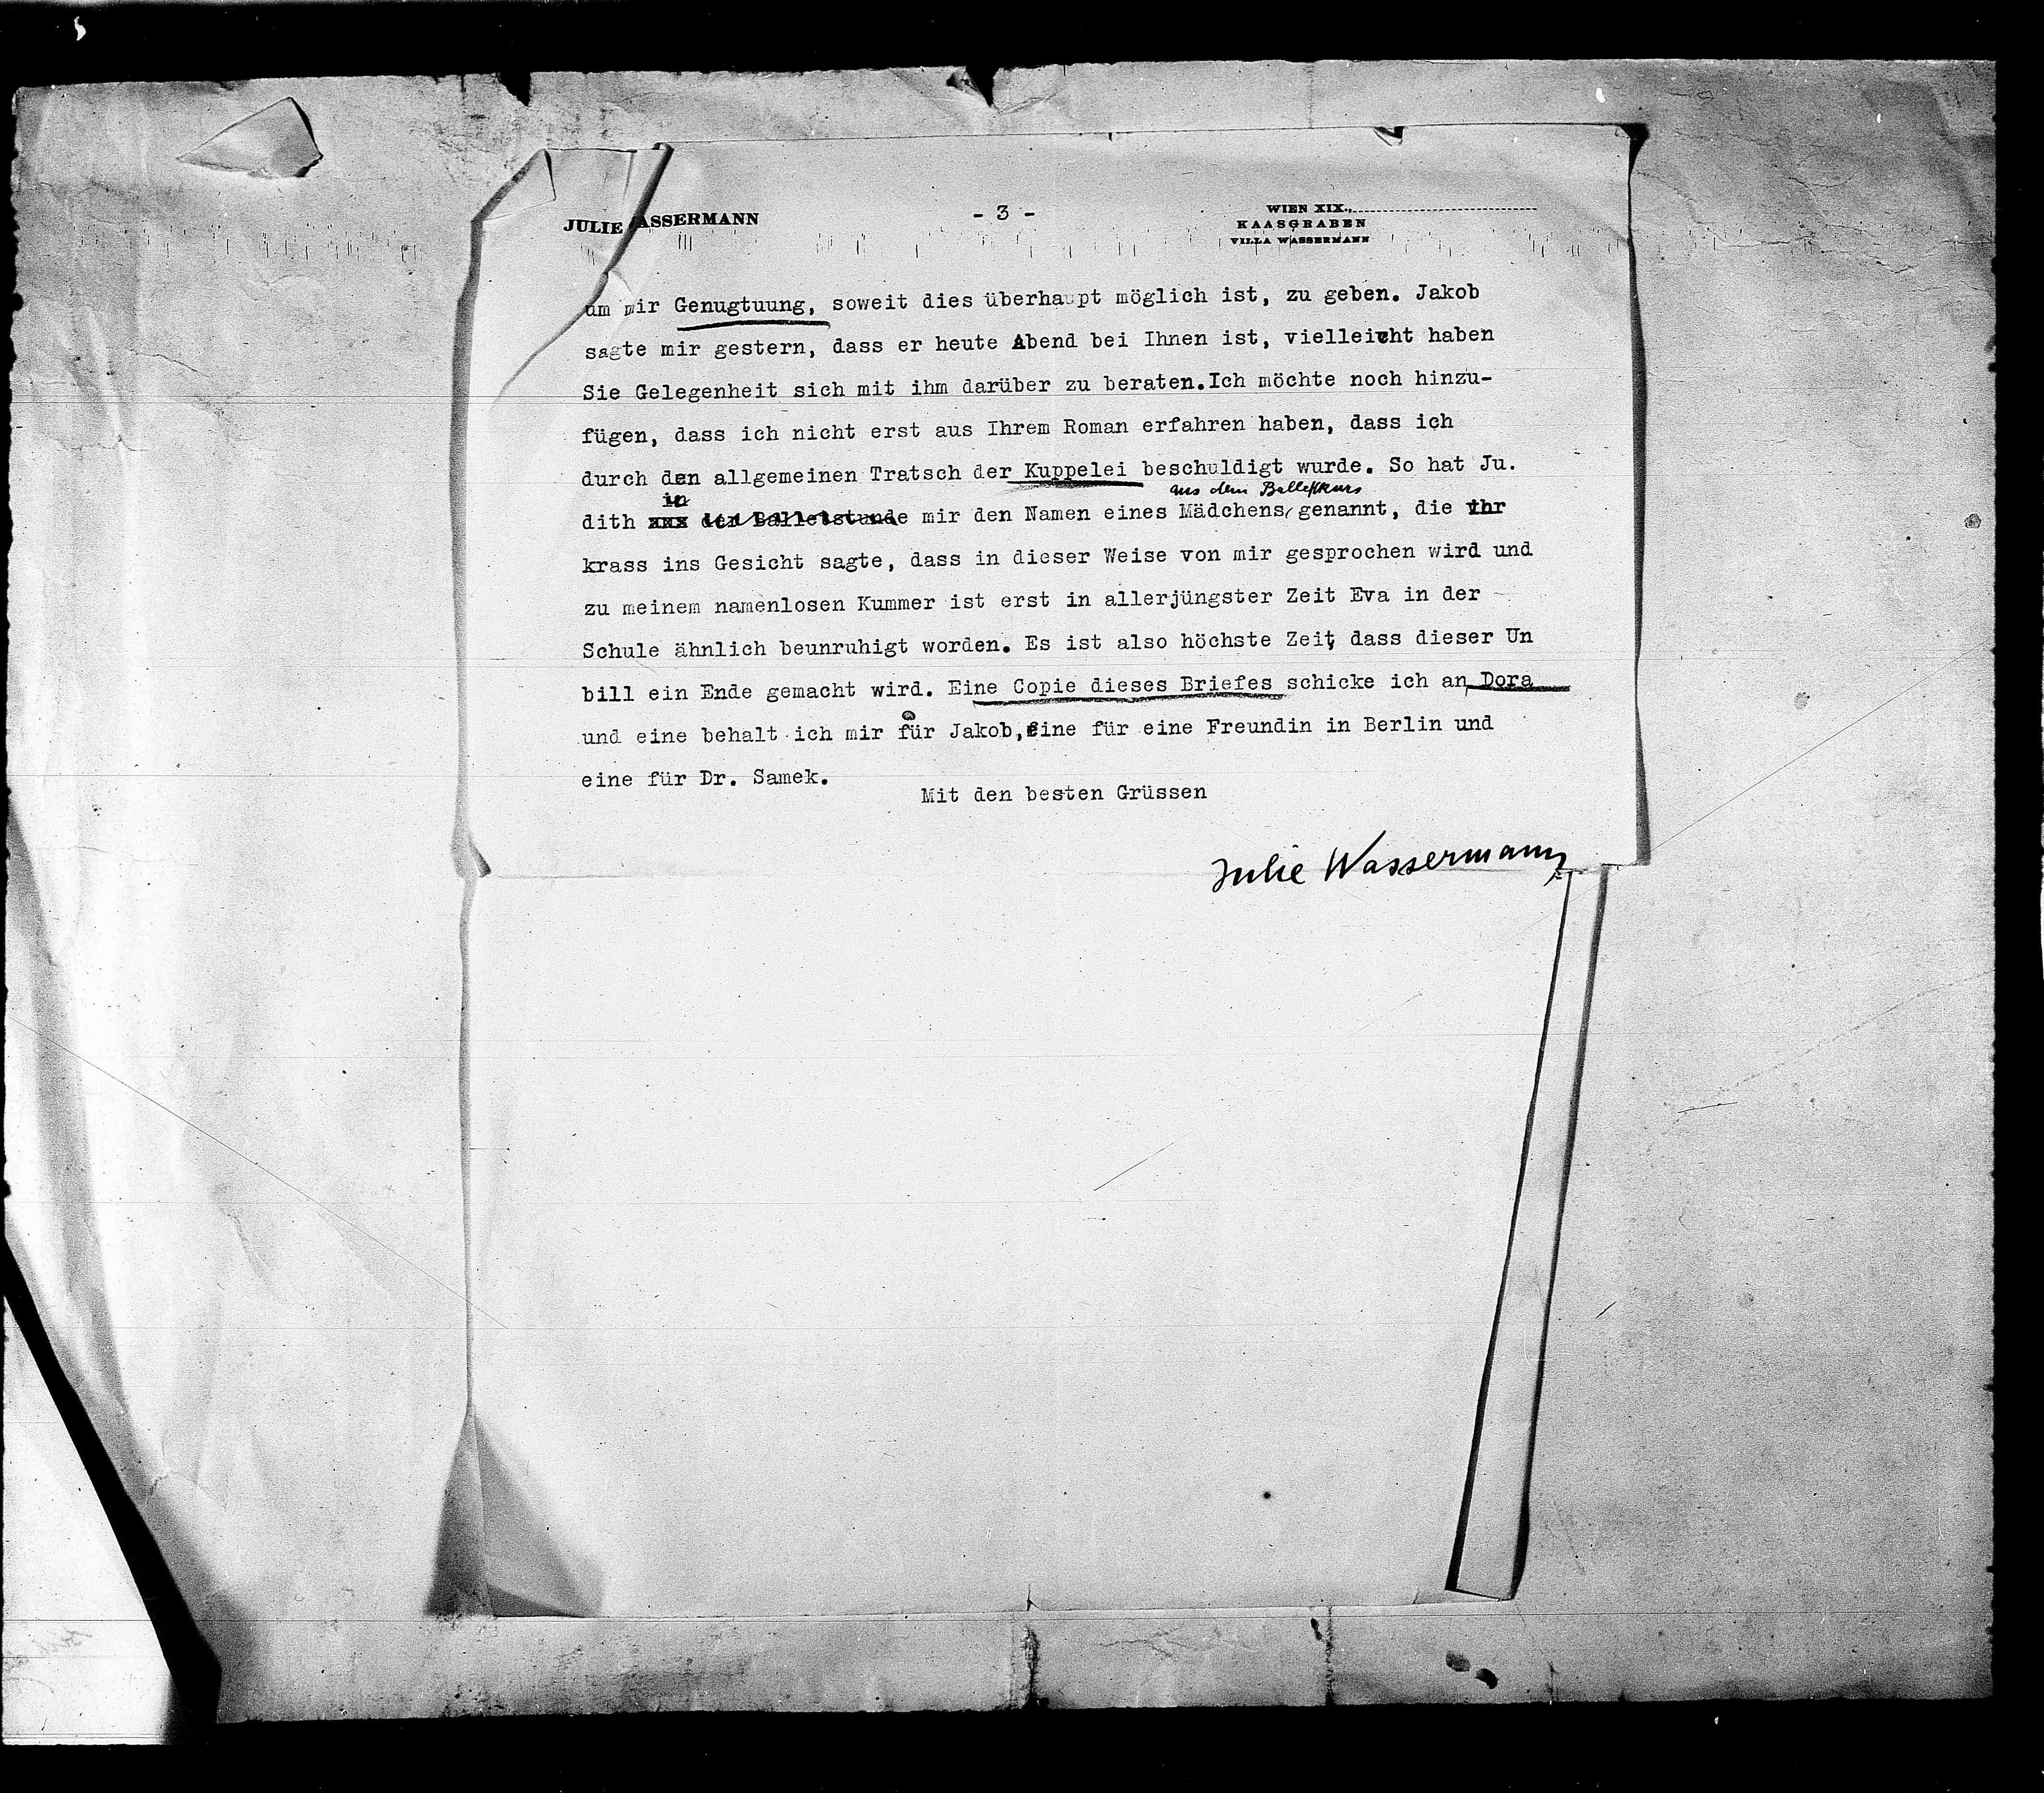 JULIE WASSERMANN
- 3 -
WIEN XIX.,
KAASGRABEN
VILLA WASSERMANN
um mir Genugtuung, soweit dies überhaupt möglich ist, zu geben. Jakob
sagte mir gestern, dass er heute Abend bei Ihnen ist, vielleicht haben
Sie Gelegenheit sich mit ihm darüber zu beraten.Ich möchte noch hinzu-
fügen, dass ich nicht erst aus Ihrem Roman erfahren haben, dass ich
durch den allgemeinen Tratsch der Kuppelei beschuldigt wurde. So hat Ju.
in
aus dem Balletkurs
dith xxx der Balletstunde mir den Namen eines Mädchens genannt, die ihr
krass ins Gesicht sagte, dass in dieser Weise von mir gesprochen wird und
zu meinem namenlosen Kummer ist erst in allerjüngster Zeit Eva in der
Schule ähnlich beunruhigt worden. Es ist also höchste Zeit, dass dieser Un
bill ein Ende gemacht wird. Eine Copie dieses Briefes schicke ich an Dora
und eine behalt ich mir für Jakob,eine für eine Freundin in Berlin und
eine für Dr. Samek.
Mit den besten Grüssen
Julie Wassermann